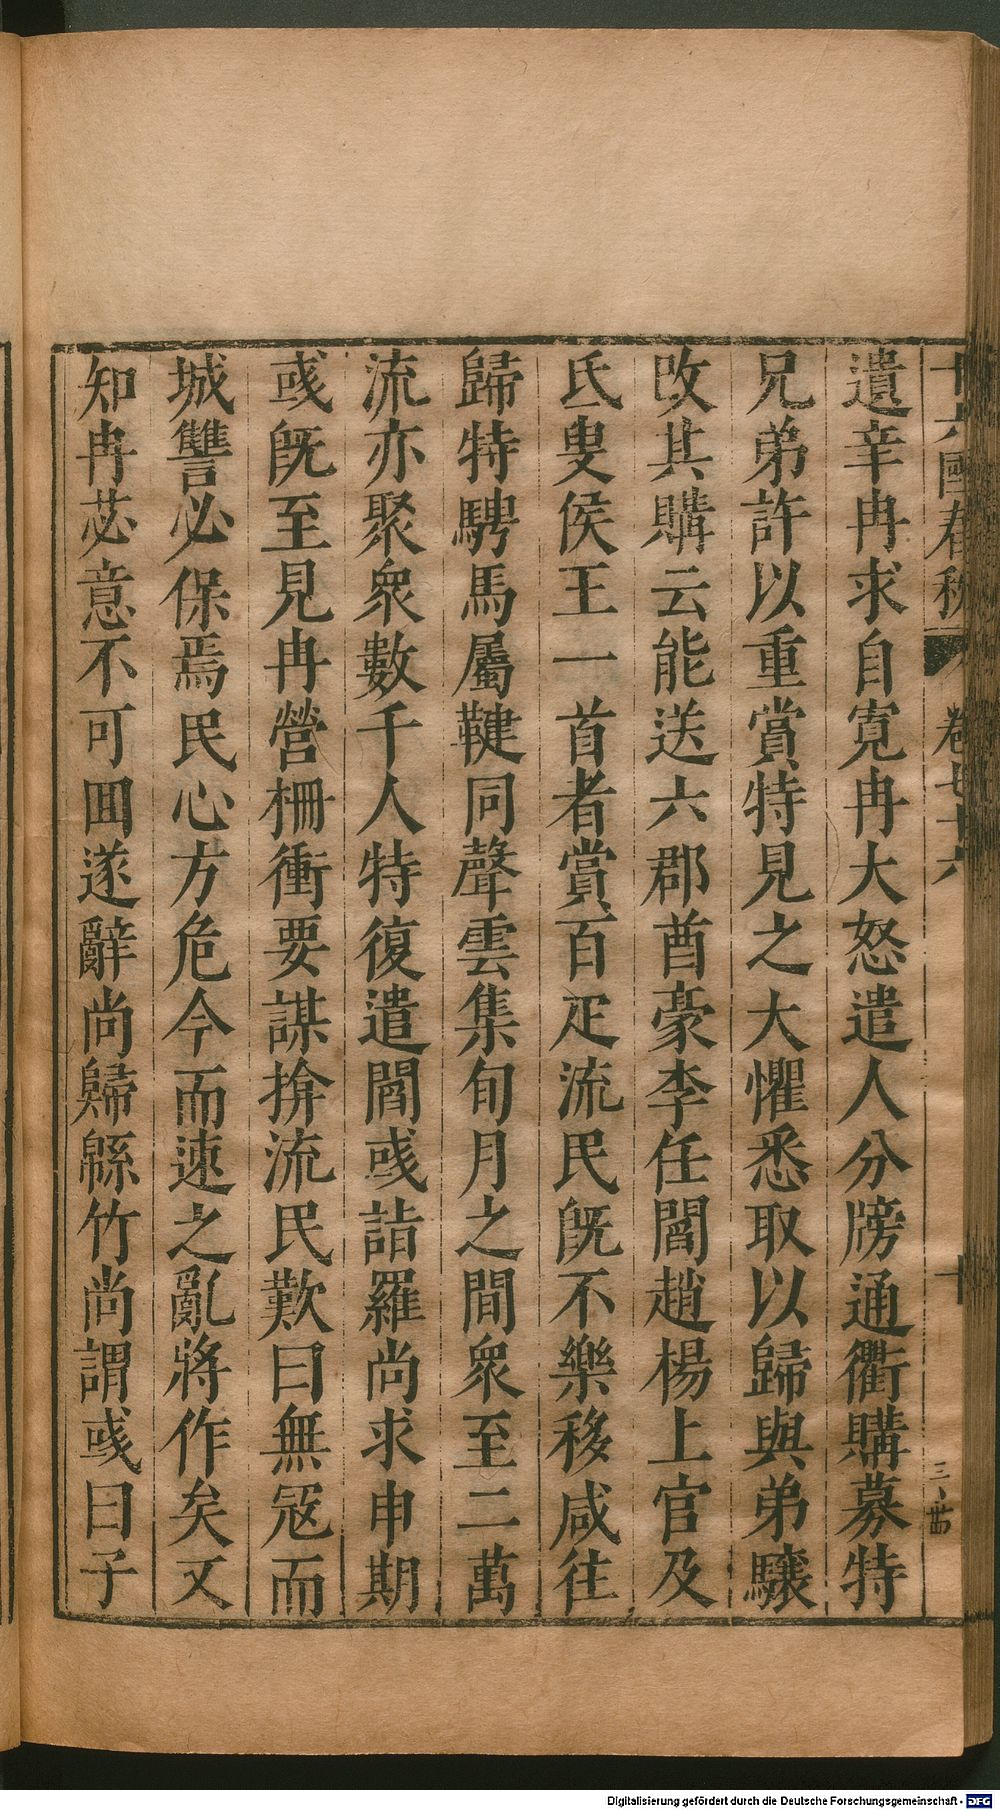 十六國春秋 卷七十六 十
遺辛冉求自寬冉大怒遣人分牓通衢購募特
兄弟許以重賞特見之大懼悉取以歸與弟驤
改其購云能送六郡酋豪李任閻趙楊上官及
氐叟侯王一首者賞百疋流民旣不樂移咸往
歸特騁馬屬鞬同聲雲集旬月之間衆至二萬
流亦聚衆數千人特復遣閻彧詣羅尚求申期
彧旣至見冉營柵衝要謀揜流民歎曰無冦而
城讐必保焉民心方危今而速之亂將作矣又
知冉苾意不可囬遂辭尚歸緜竹尚謂彧曰子
Digitalisierung gefördert durch die Deutsche Forschungsgemeinschaft - DFG